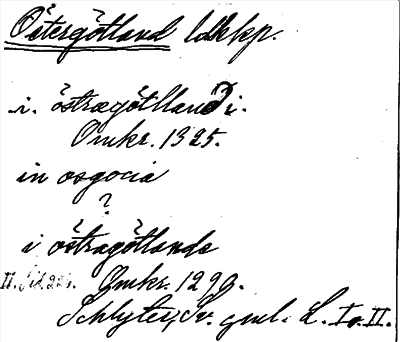 Östergötland ldskp.
i. östrægötllandi.
Omkr. 1325.
in osgocia
?
i östragötlande
Omkr. 1290.
Schlyter, Sv. gml. L. I o. II.